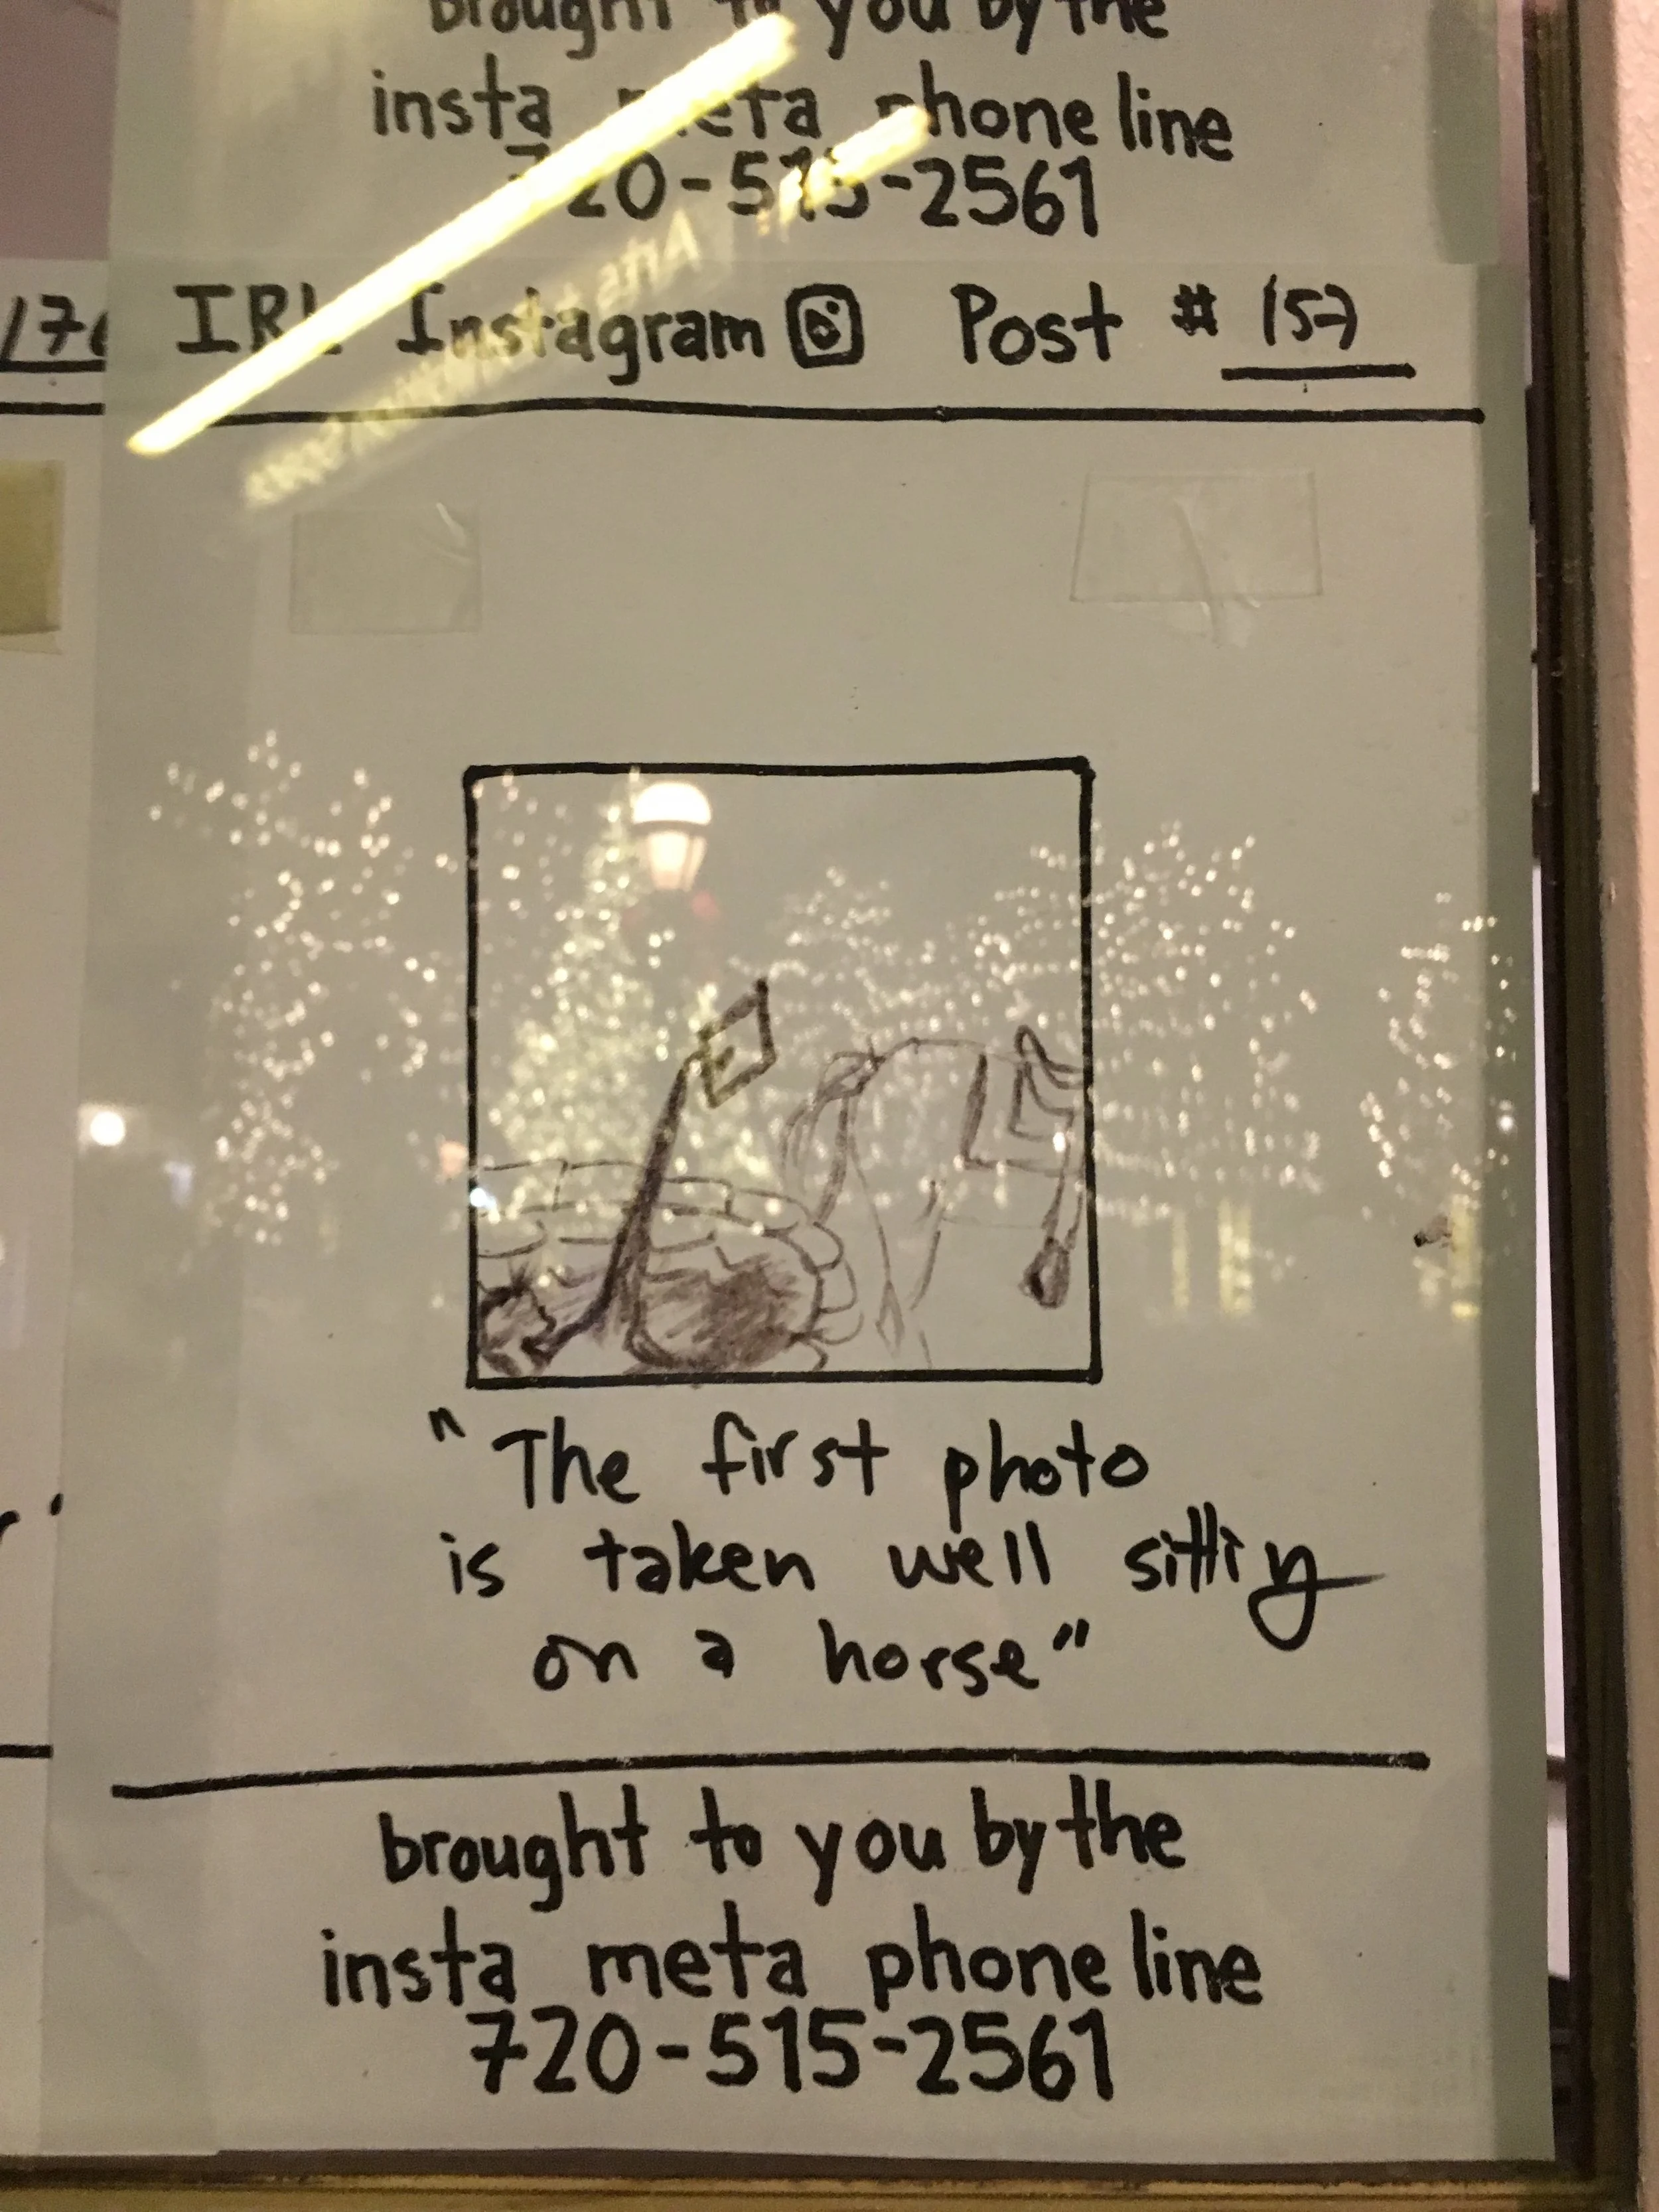 brought to you by the
insta meta phone line
720-515-2561
IRL Instagram Post # 157
"The first photo
is taken well sitting
on a horse"
brought to you by the
insta meta phone line
720-515-2561